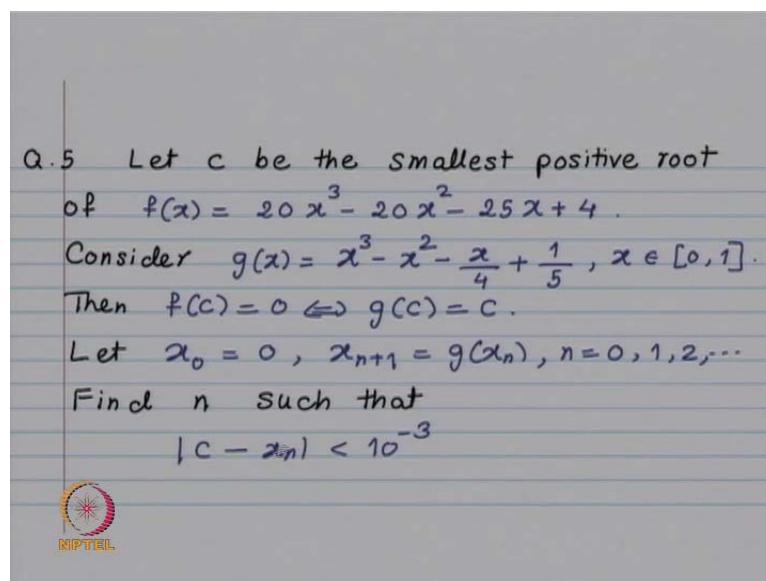 Q.5 Let c be the smallest positive root
of f(x) = 20x³ - 20x² - 25x + 4.
Consider g(x) = x³ - x² - x/4 + 1/5, x ∈ [0,1].
Then f(c) = 0 ⇔ g(c) = c.
Let x₀ = 0, xₙ₊₁ = g(xₙ), n = 0, 1, 2, ...
Find n such that
|c - xₙ| < 10⁻³
NPTEL